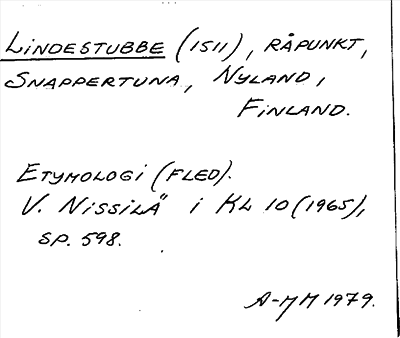 LINDESTUBBE (1511), RÅPUNKT,
SNAPPERTUNA, NYLAND,
FINLAND.
ETYMOLOGI (FLED).
V. NISSILÄ i KL 10 (1965),
SP. 598.
A-MM 1979.